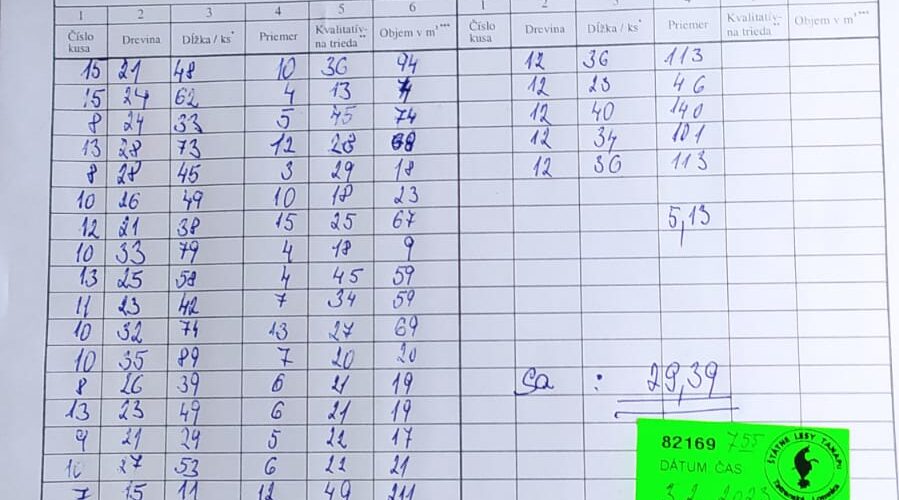 1 2 3 4 5 6 1 2 3 4 5 6
Číslo kusa Drevina Dĺžka / ks* Priemer Kvalitatív- na trieda** Objem v m³*** Číslo kusa Drevina Dĺžka / ks* Priemer Kvalitatív- na trieda** Objem v m³***
15 21 48 10 36 94 12 36 113
15 24 62 4 13 12 23 46
8 24 33 5 45 74 12 40 140
13 28 73 12 28 68 12 34 101
8 28 45 3 29 18 12 36 113
10 26 49 10 18 23
12 21 38 15 25 67 5,13
10 33 79 4 18 9
13 25 58 4 45 59
11 23 42 7 34 59
10 32 74 13 27 69
10 35 89 7 20 20
8 26 39 6 21 19 Sa : 29,39
13 23 49 6 21 19
9 21 29 5 22 17
27 53 6 22 21
7 15 11 12 49 211
82169 755
DÁTUM ČAS
ŠTÁTNE LESY TANAPU